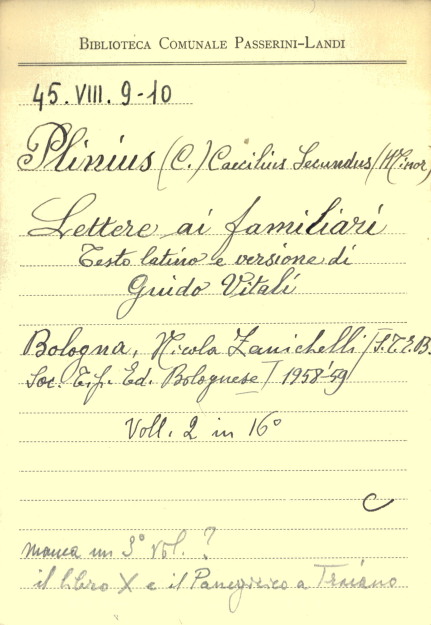 BIBLIOTECA COMUNALE PASSERINI-LANDI
45. VIII. 9-10
Plinius (C.) Caecilius Secundus (Minor)
Lettere ai familiari
Testo latino e versione di
Guido Vitali
Bologna, Nicola Zanichelli (S.T.E.B.
Soc. Tip. Ed. Bolognese) 1958-'59
Voll. 2 in 16°
C
manca un 3° vol. ?
il libro X e il Panegirico a Traiano